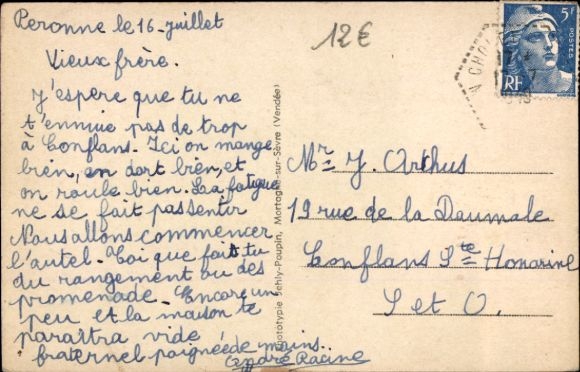 Peronne le 16 juillet
12€
Vieux frère.
J'espère que tu ne
t'ennuie pas de trop
à Conflans. Ici on mange
bien, on dort bien, et
on roule bien. La fatigue
ne se fait pas sentir
Nous allons commencer
l'autel. Toi que fais tu
du rangement ou des
promenade. Encore un
peu et la maison te
paraîtra vide
fraternel poignée de mains.
André Racine
Phototypie Jehly-Poupin, Mortagne-sur-Sèvre (Vendée)
5F
POSTES
RF
Mr J. Arthus
19 rue de la Daumale
Conflans Ste Honorine
S et O.